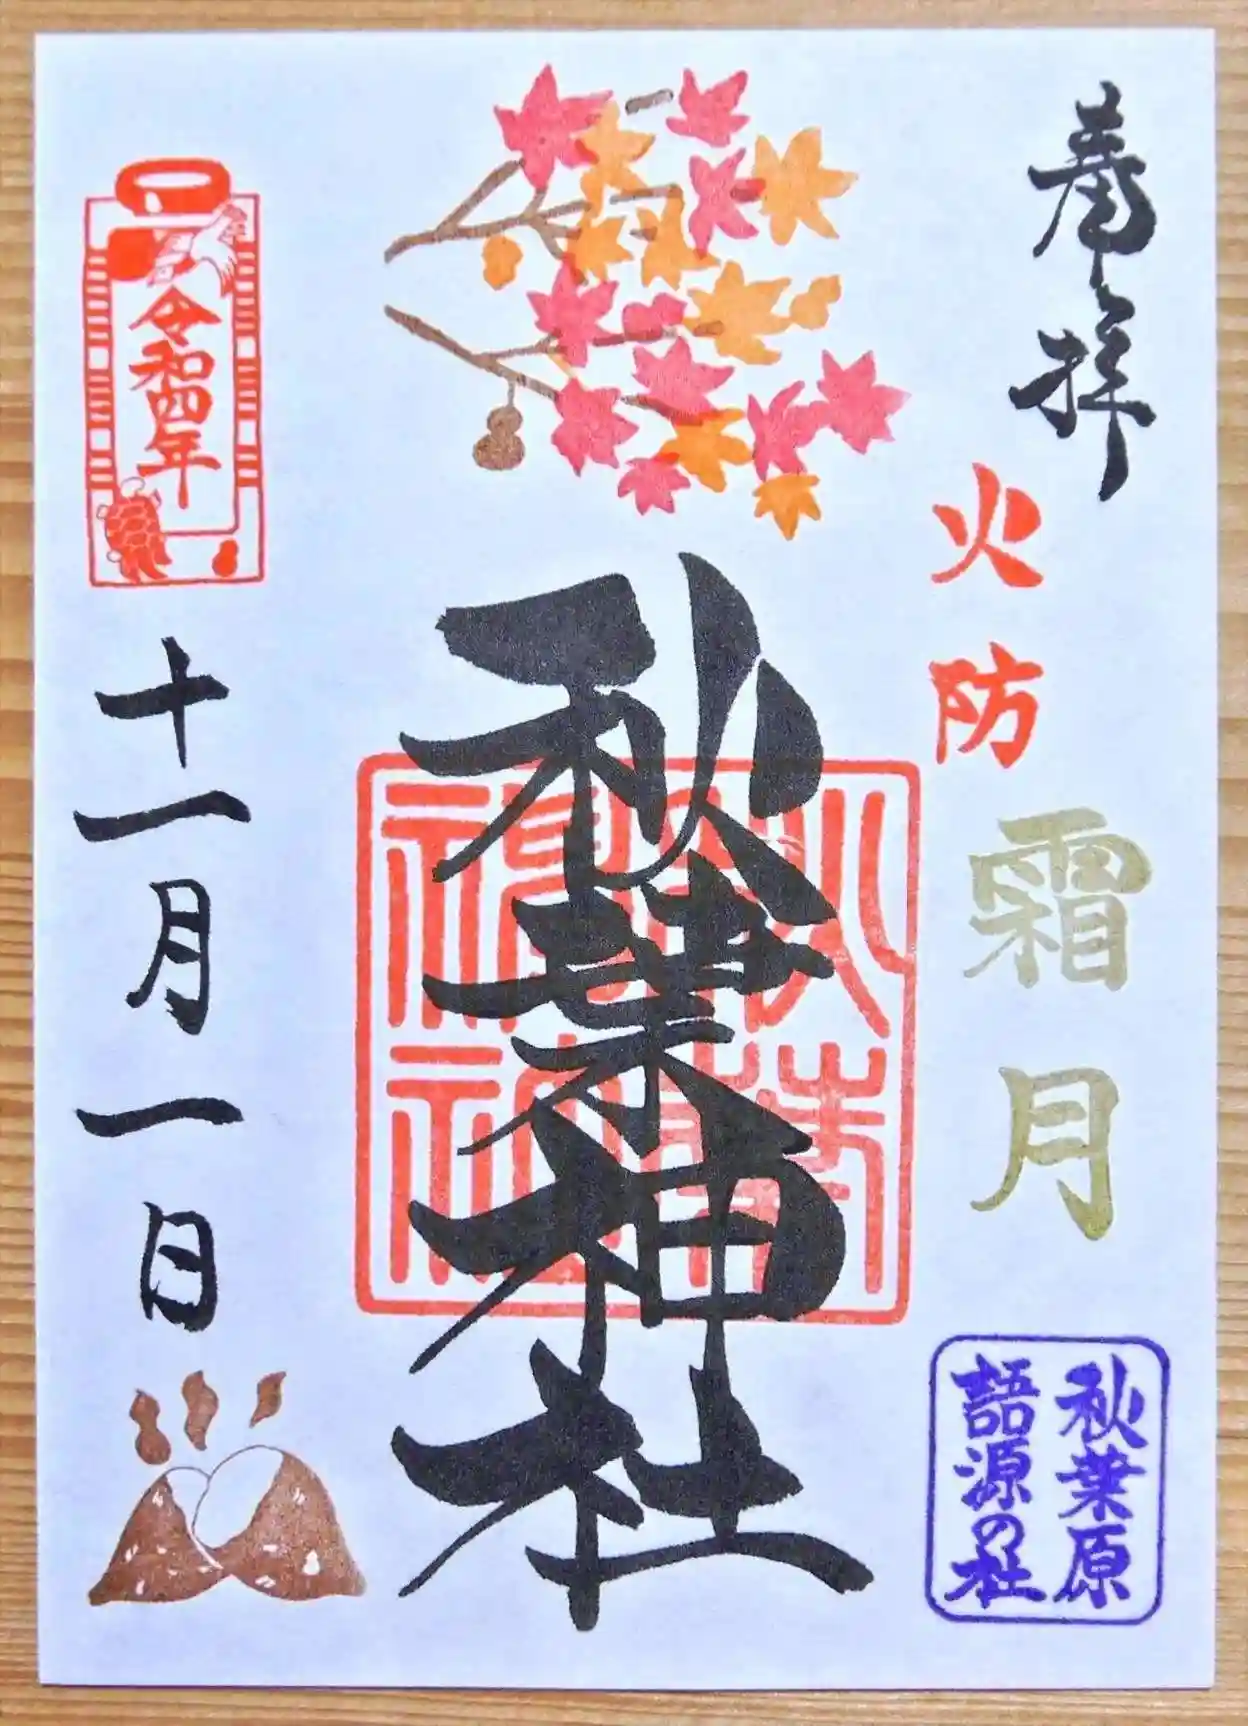 奉拝
火防
霜月
秋葉原
語源の社
秋葉神社
秋葉
神社
令和四年
十一月一日